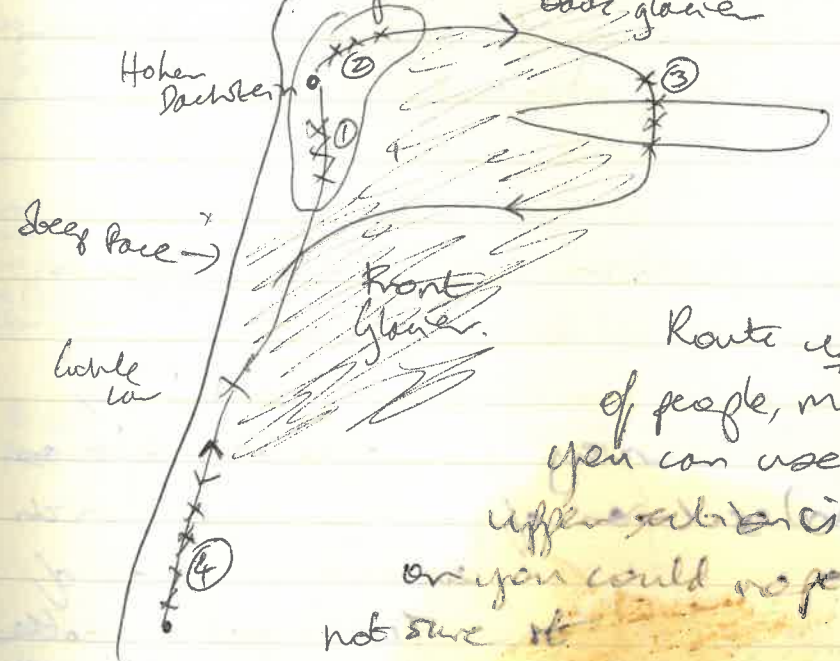 back glacier
②
Hohen
Dachstein
③
①
Steep Face →
Front
Glacier.
Cable
car
Route
of people,
you can use
upper section is
④
or you could rope
not sure it